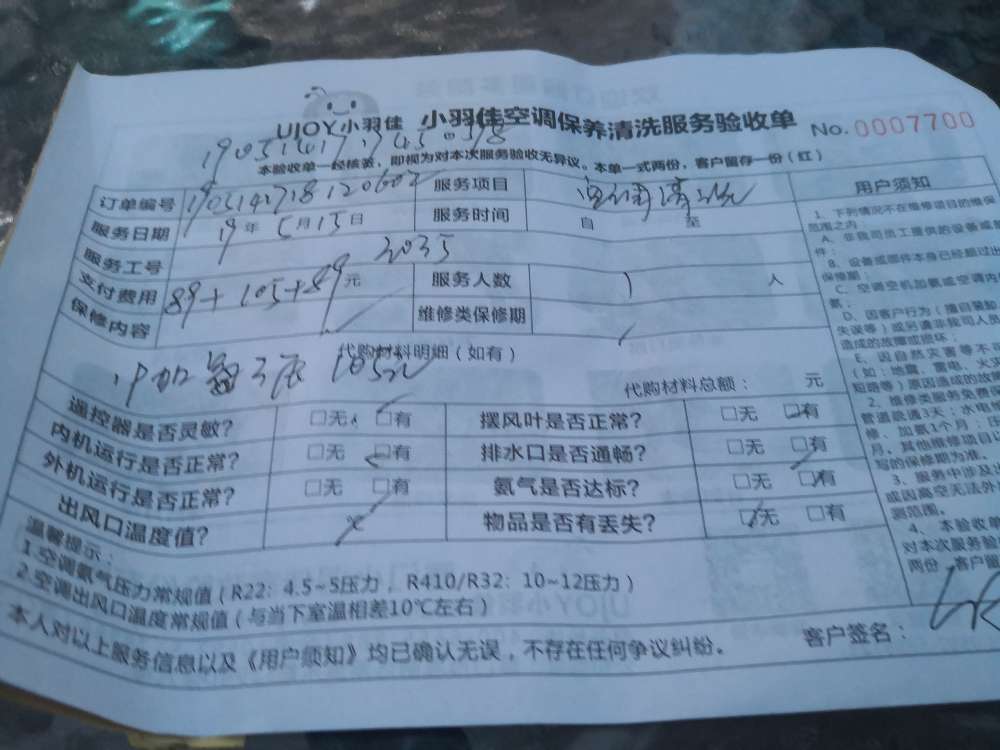 UJOY小羽佳 小羽佳空调保养清洗服务验收单 No.0007700
本验收单一经核签，即视为对本次服务验收无异议。本单一式两份，客户留存一份（红）
订单编号 服务项目 空调清洗
服务日期 19年5月15日 服务时间 自 至
服务工号 2035
支付费用 89+105+89元 服务人数 1 人
保修内容 维修类保修期
代购材料明细（如有）
105元
代购材料总额： 元
遥控器是否灵敏？ □无 □有 摆风叶是否正常？ □无 □有
内机运行是否正常？ □无 □有 排水口是否通畅？ □无 □有
外机运行是否正常？ □无 □有 氨气是否达标？ □无 □有
出风口温度值？ 物品是否有丢失？ □无 □有
温馨提示：
1.空调氨气压力常规值（R22：4.5~5压力，R410/R32：10~12压力）
2.空调出风口温度常规值（与当下室温相差10℃左右）
本人对以上服务信息以及《用户须知》均已确认无误，不存在任何争议纠纷。 客户签名：
用户须知
1、下列情况不在维修项目的维保
范围之内
A、非我司员工提供的设备或
件；
B、设备或部件本身已经超过出
保修期；
C、空调空机加氨或空调内
氨；
D、因客户行为（擅自装
失误等）或另遣非我司人员
造成的故障或损坏；
E、因自然灾害等不可
（如：地震、雷电、火
短路等）原因造成的故
2、维修类服务免费保
管道疏通3天；水电维
修、加氨1个月；压
月，其他维修项目以
写的保修期为准。
3、服务中涉及
或因高空无法外
测范围。
4、本验收单
对本次服务验
两份，客户留